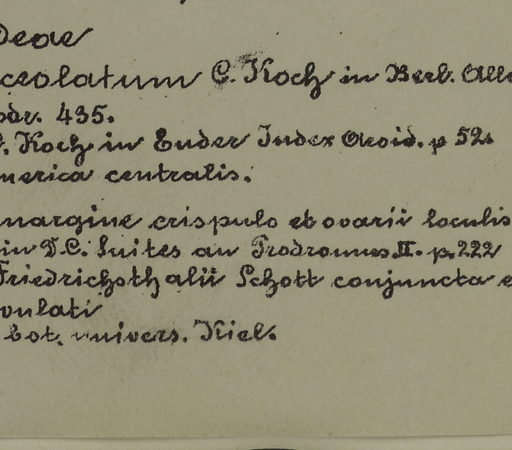 Deae
ceolatum C. Koch in Berl. Alle
odr. 435.
C. Koch in Ender Index Aroid. p 52.
merica centralis.
margine crispulo et ovarii loculis
in D.C. Suites au Prodromus II. p. 222
Friedrichsthalii Schott conjuncta e
ovulati
bot. univers. Kiel.